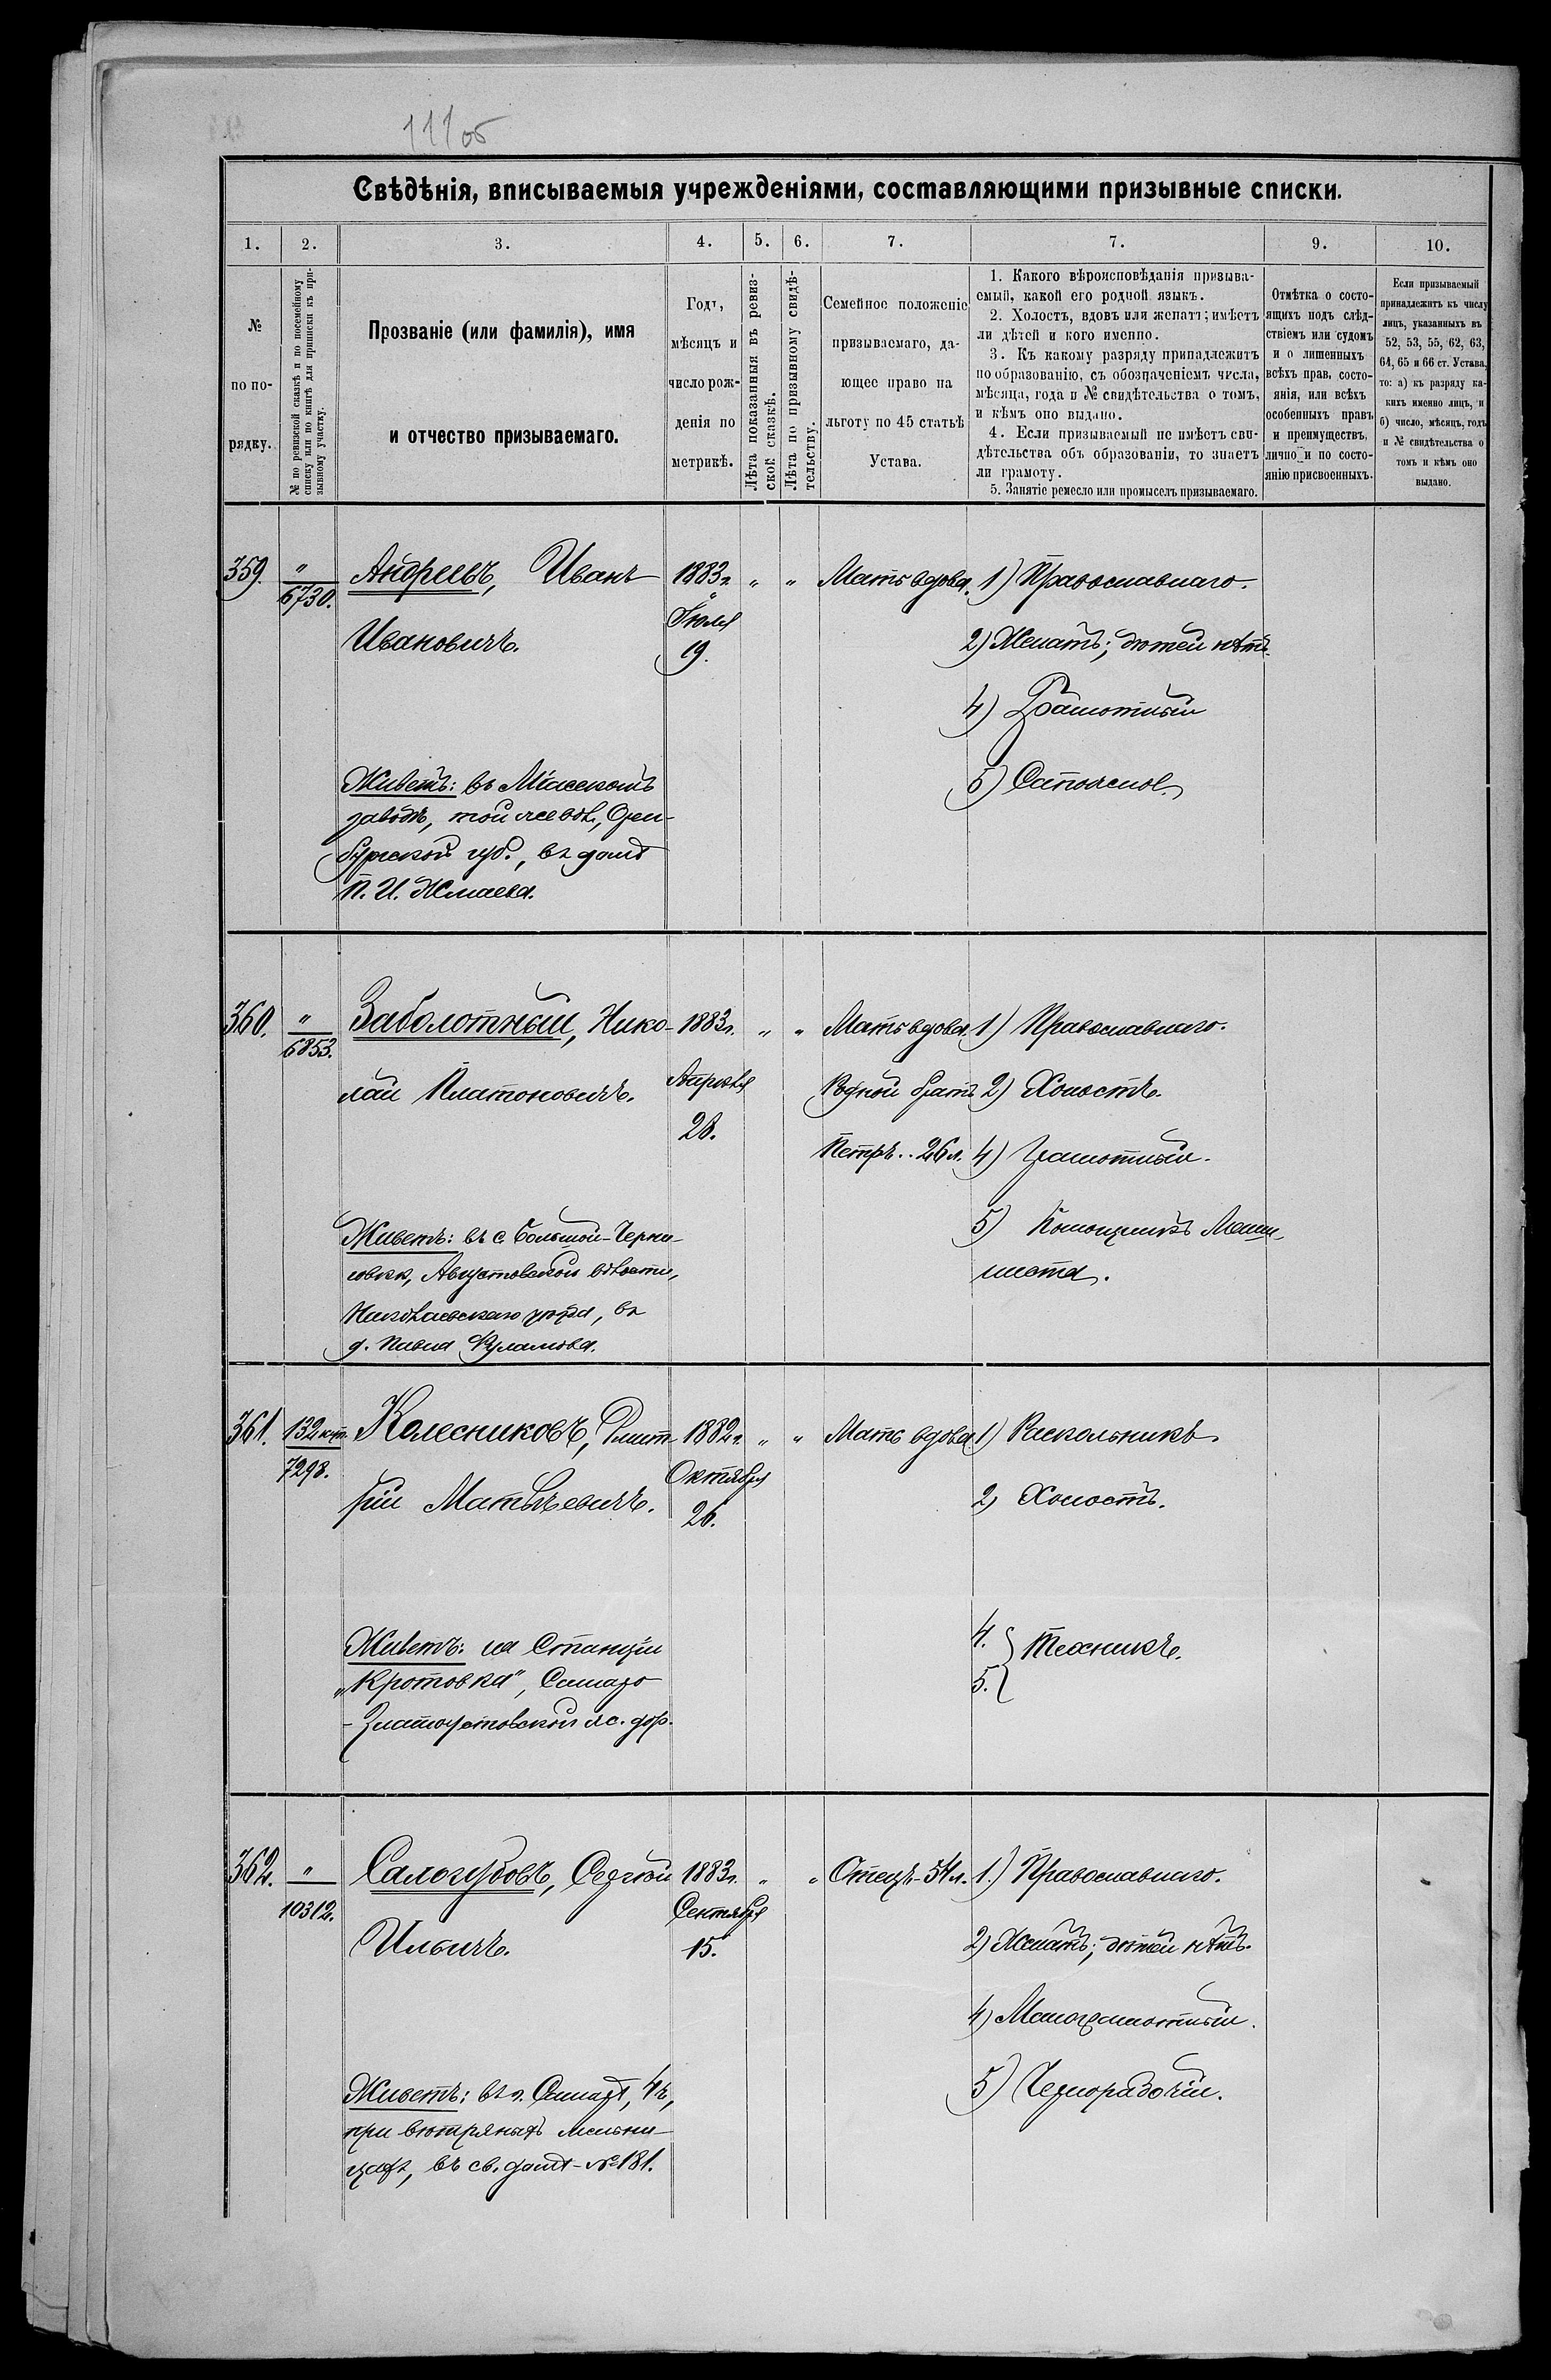 111об
Свѣдѣнія, вписываемыя учрежденіями, составляющими призывные списки.
1. 2. 3. 4. 5. 6. 7. 7. 9. 10.
№ по порядку.
№ по ревизской сказкѣ и по посемейному списку или по книгѣ для приписки къ призывному участку.
Прозваніе (или фамилія), имя
и отчество призываемаго.
Годъ,
мѣсяцъ и
число рож-
денія по
метрикѣ.
Лѣта показанныя въ ревизской сказкѣ.
Лѣта по призывному свидѣтельству.
Семейное положеніе
призываемаго, да-
ющее право на
льготу по 45 статьѣ
Устава.
1. Какого вѣроисповѣданія призыва-
емый, какой его родной языкъ.
2. Холостъ, вдовъ или женатъ; имѣетъ
ли дѣтей и кого именно.
3. Къ какому разряду принадлежитъ
по образованію, съ обозначеніемъ числа,
мѣсяца, года и № свидѣтельства о томъ,
и кѣмъ оно выдано.
4. Если призываемый не имѣетъ сви-
дѣтельства объ образованіи, то знаетъ
ли грамоту.
5. Занятіе ремесло или промыселъ призываемаго.
Отмѣтка о состо-
ящихъ подъ слѣд-
ствіемъ или судомъ
и о лишенныхъ
всѣхъ прав, состо-
янія, или всѣхъ
особенныхъ правъ
и преимуществъ,
лично и по состо-
янію присвоенныхъ.
Если призываемый
принадлежитъ къ числу
лицъ, указанныхъ въ
52, 53, 55, 62, 63,
64, 65 и 66 ст. Устава,
то: а) къ разряду ка-
кихъ именно лицъ, и
б) число, мѣсяцъ, годъ
и № свидѣтельства о
томъ и кѣмъ оно
выдано.
359. " Андреевъ, Иванъ 1883г. " " Мать вдова. 1) Православнаго.
6730.
Ивановичъ.
Іюля
19.
2) Женатъ; дѣтей нѣтъ.
4) Грамотный
5) Сапожное.
Живетъ: въ Міасскомъ
заводѣ, той же вол., Орен-
бургской губ., въ домѣ
П. И. Жмаева.
360. " Заболотный, Нико- 1883г. " " Мать вдова. 1) Православнаго.
6853.
лай Платоновичъ. Апрѣля Родной братъ 2) Холостъ.
28. Петръ.. 26 л. 4) Грамотный.
5) Помощникъ Маши-
ниста.
Живетъ: въ с. Большой-Черни-
говкѣ, Августовской волости,
Николаевскаго уѣзда, въ
д. Павла
361. 132 кт. Колесниковъ, Дмит- 1882г. " " Мать вдова 1) Раскольникъ
7298.
рій Матвѣевичъ. Октября
26.
2) Холостъ.
4. 5. } Техникъ.
Живетъ: на Станціи
„Кротовка", Самаро
-Златоустовской ж. дор.
362. " Салогубовъ, Сергѣй 1883г. " " Отецъ - 54 л. 1.) Православнаго.
10312.
Ильичъ.
Сентября
15.
2) Женатъ; дѣтей нѣтъ.
4) Малограмотный.
5) Чернорабочій.
Живетъ: въ г. Самарѣ, 4 ч,
при вѣтряныхъ мельни-
цахъ, въ св. домѣ - № 181.